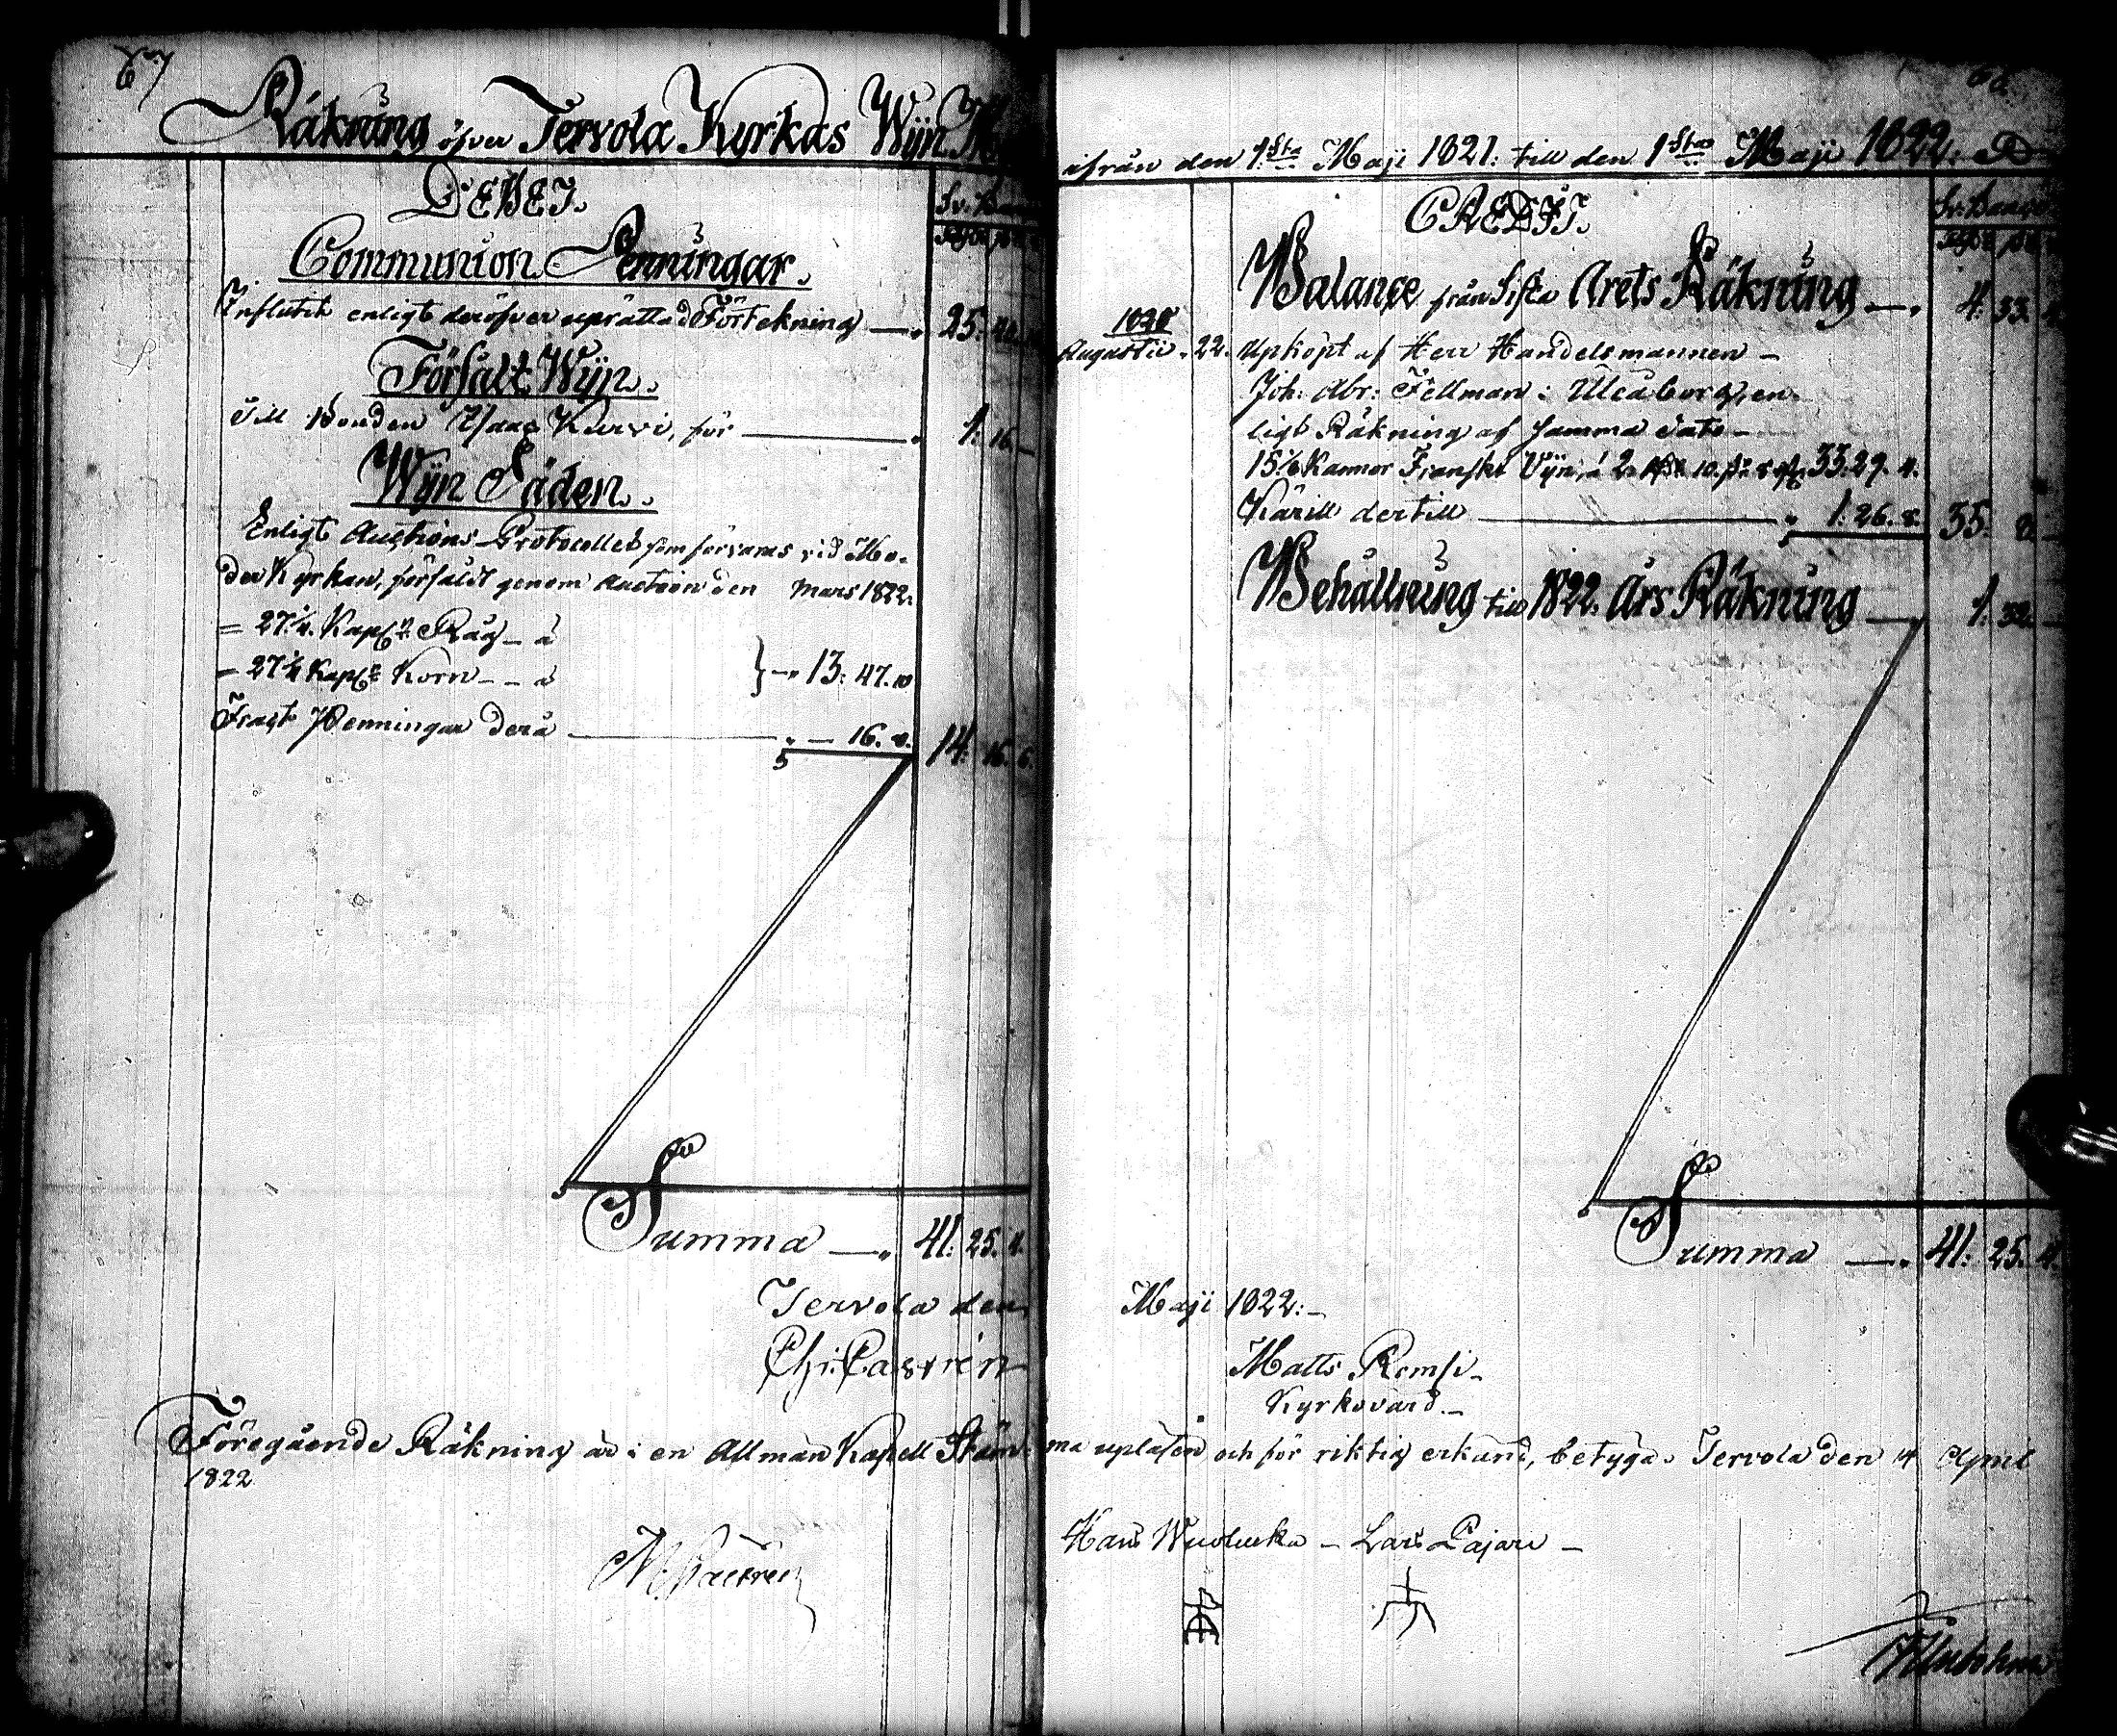 67
Räkning öfver Tervola Kyrkas Wijn
DEBET.
Sv. B
Communion Penningar.
Influtit enligt deröfver uprättad Förtekning — 25.
Försält Wijn.
Till Bonden Isaac Kurvi, för — 1: 16. —
Wijn Säden.
Enligt Auctions Protocollet som förvaras vid Mo-
der Kyrkan, försåldt genom Auction den Mars 1822.
= 27 1/4 Kapp:r Råg – à
= 27 1/4 Kapp:r Korn – – à } – 13: 47. 10
Fragt Penningar derå — „ — 16. 8. 14: 16. 6.
Summa — 41: 25. 4.
Tervola den
Ch: Castrén
Föregående Räkning är i en Allmän Kapell Stäm-
1822
M. Castrén
68
ifrån den 1:sta Maji 1821: till den 1:sta Maji 1822.
CREDIT.
Sv: Banco
Balance från Sista Årets Räkning — 4: 33.
1820
Augustii. 22. Upköpt af Herr Handelsmannen –
Joh: Abr: Fellman i Uleåborg, en-
ligt Räkning af samma dato –
15 1/6 Kannor Franskt Vijn, à 2 10. 33: 29. 4.
Kärill dertill — 1: 26. 8. 35: 8. —
Behållning till 1822. Års Räkning — 1: 32. —
Summa — 41: 25. 4.
Maji 1822: –
Matts Remsi –
Kyrkovärd. –
ma uplasen och för riktig erkänd, betyga. Tervola den 14 April
Hans Wuolucka – Lars Pajari –